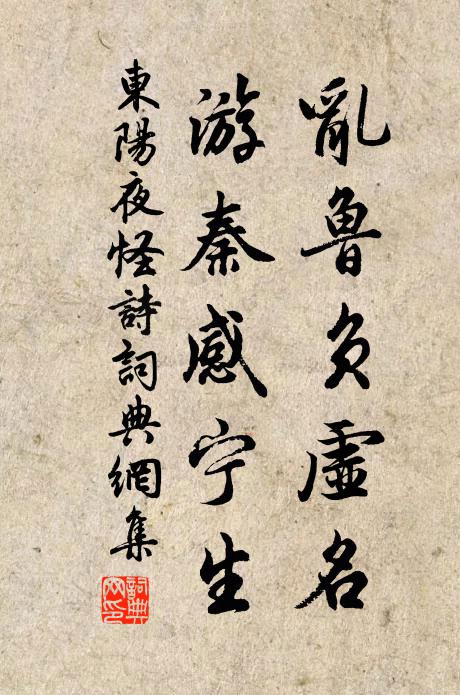 亂魯负虛名
游秦感宁生
東陽夜怪詩詞典網集
詞典网印